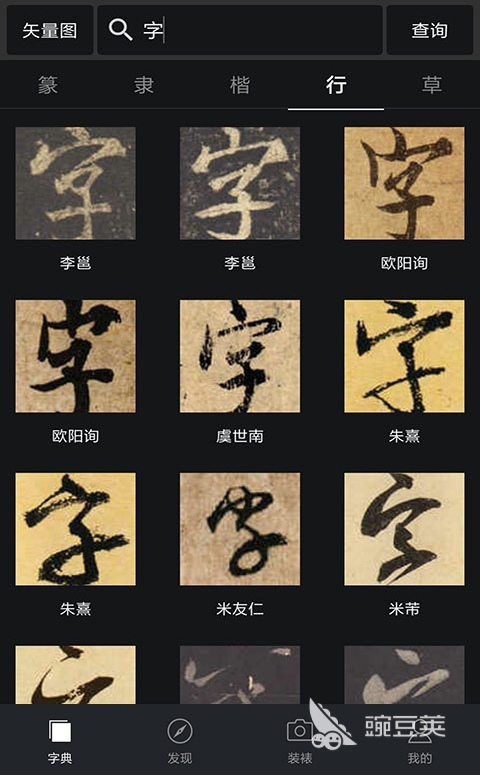 矢量图 字 查询
篆 隶 楷 行 草
字 字 字
李邕 李邕 欧阳询
字 字 字
欧阳询 虞世南 朱熹
字 字 字
朱熹 米友仁 米芾
豌豆荚
字典 发现 装裱 我的